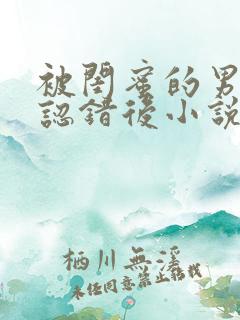 被閨蜜的男
認錯後小說
栖川無溪
未任同意禁止酷載